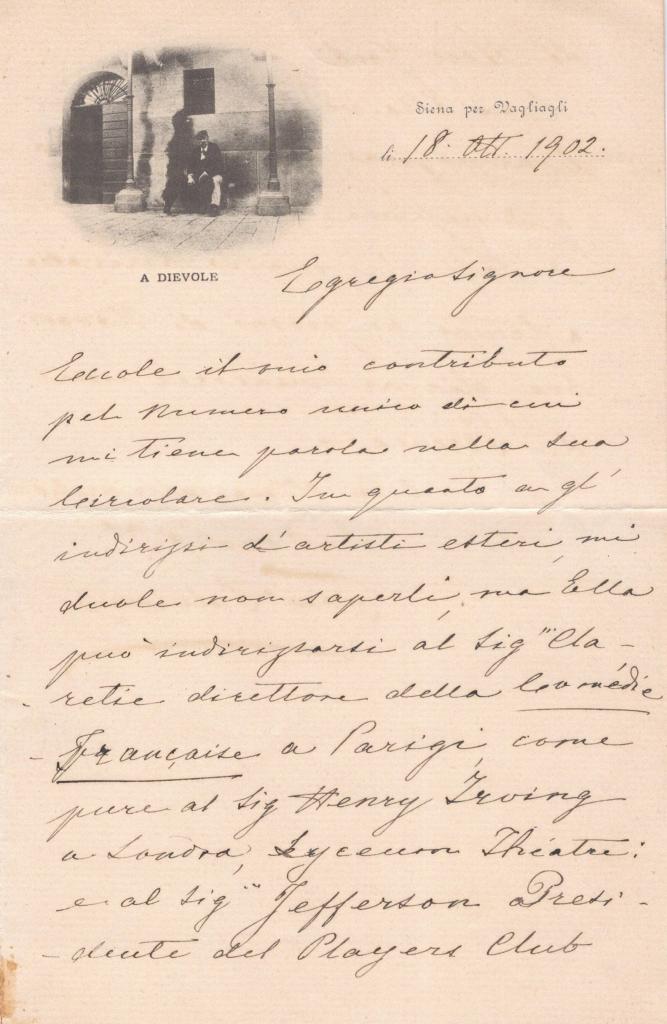 Siena per Vagliagli
li 18. Ott. 1902.
A DIEVOLE
Egregio Signore
Eccole il mio contributo
pel Numero unico di cui
mi tiene parola nella sua
Circolare. In quanto a gl'
indirizzi d'artisti esteri, mi
duole non saperli, ma Ella
può indirizzarsi al Sig.r Cla-
retie direttore della Comédie
- Française a Parigi, come
pure al Sig Henry Irving
a Londra, Lyceum Theatre:
e al Sig.r Jefferson Presi-
-dente del Players Club